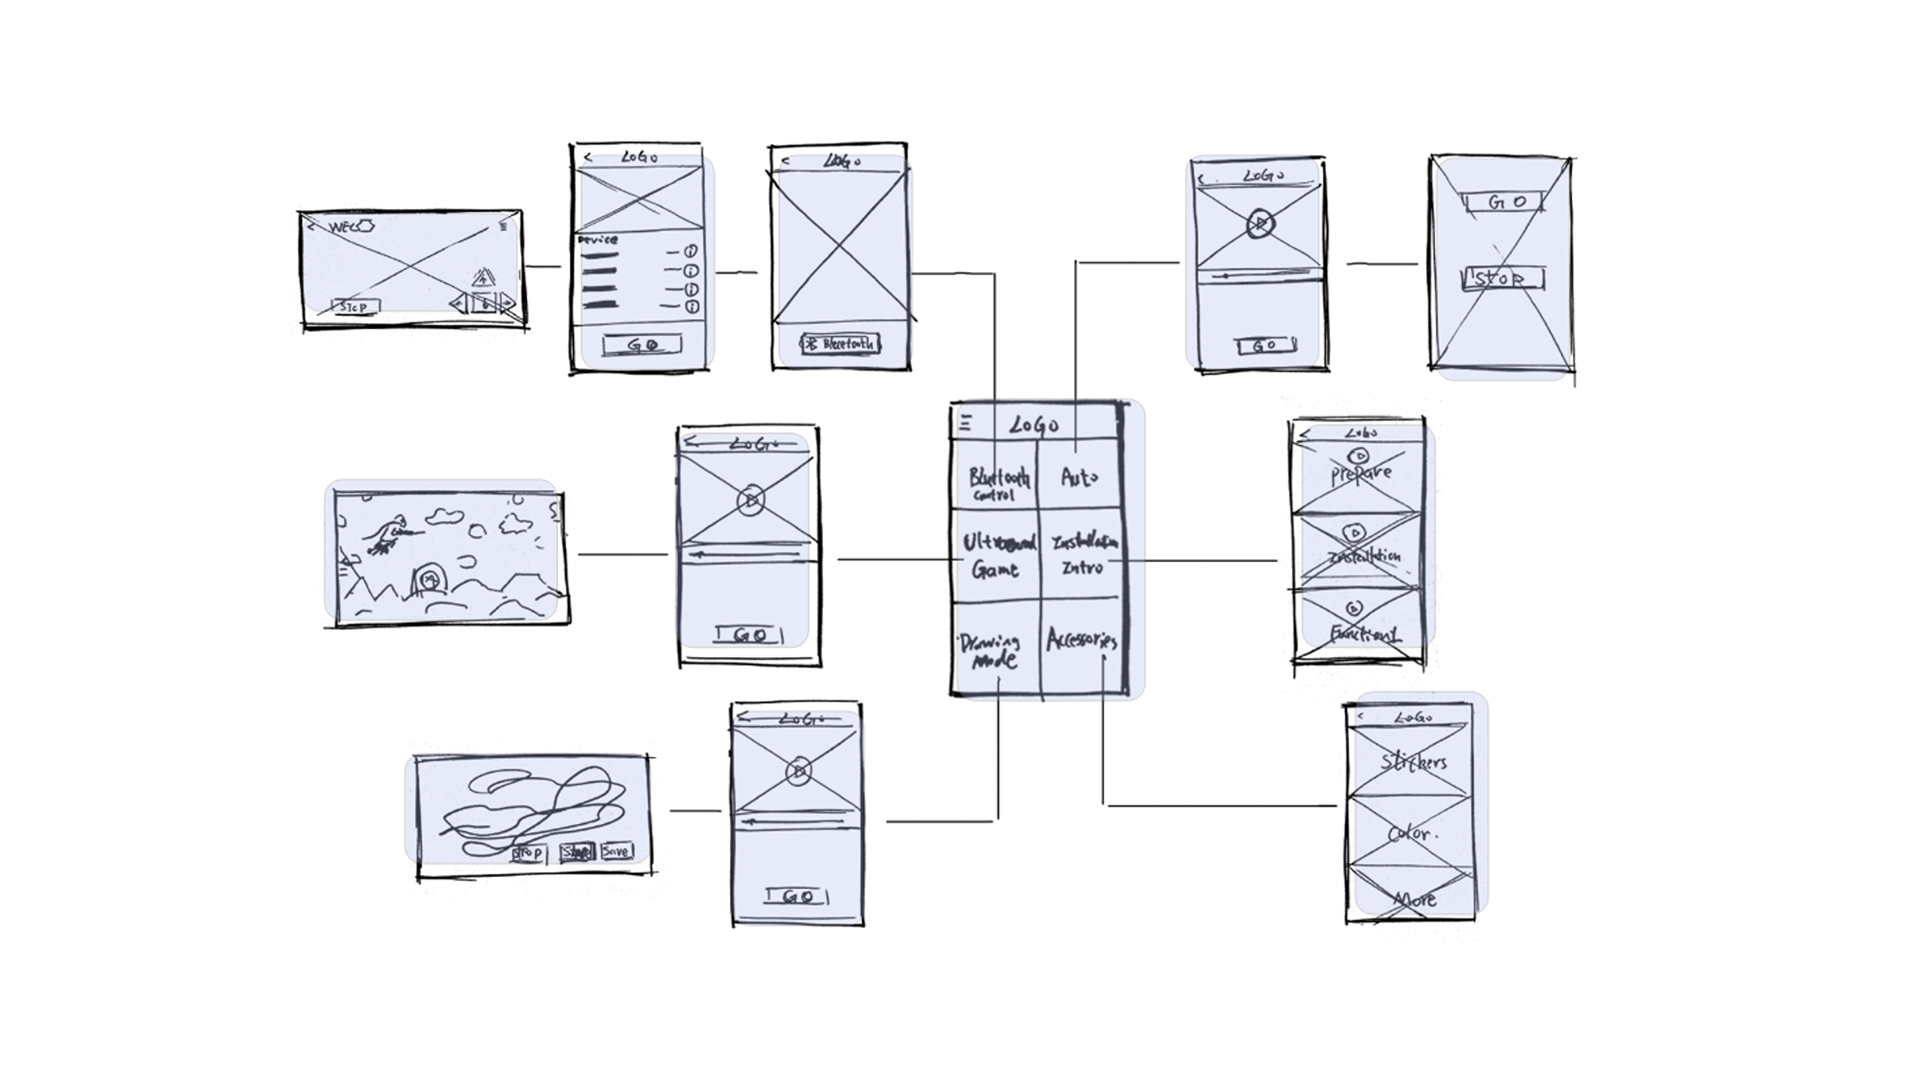 LOGO
LOGO
WELO
Device
STOP
GO
Bluetooth
LOGO
GO
GO
STOP
LOGO
Bluetooth
control
Auto
Ultrasound
Game
Installation
Intro
Drawing
Mode
Accessories
LOGO
GO
LOGO
prepare
Installation
Function1
LOGO
STOP
Save
GO
LOGO
Stickers
Color.
More